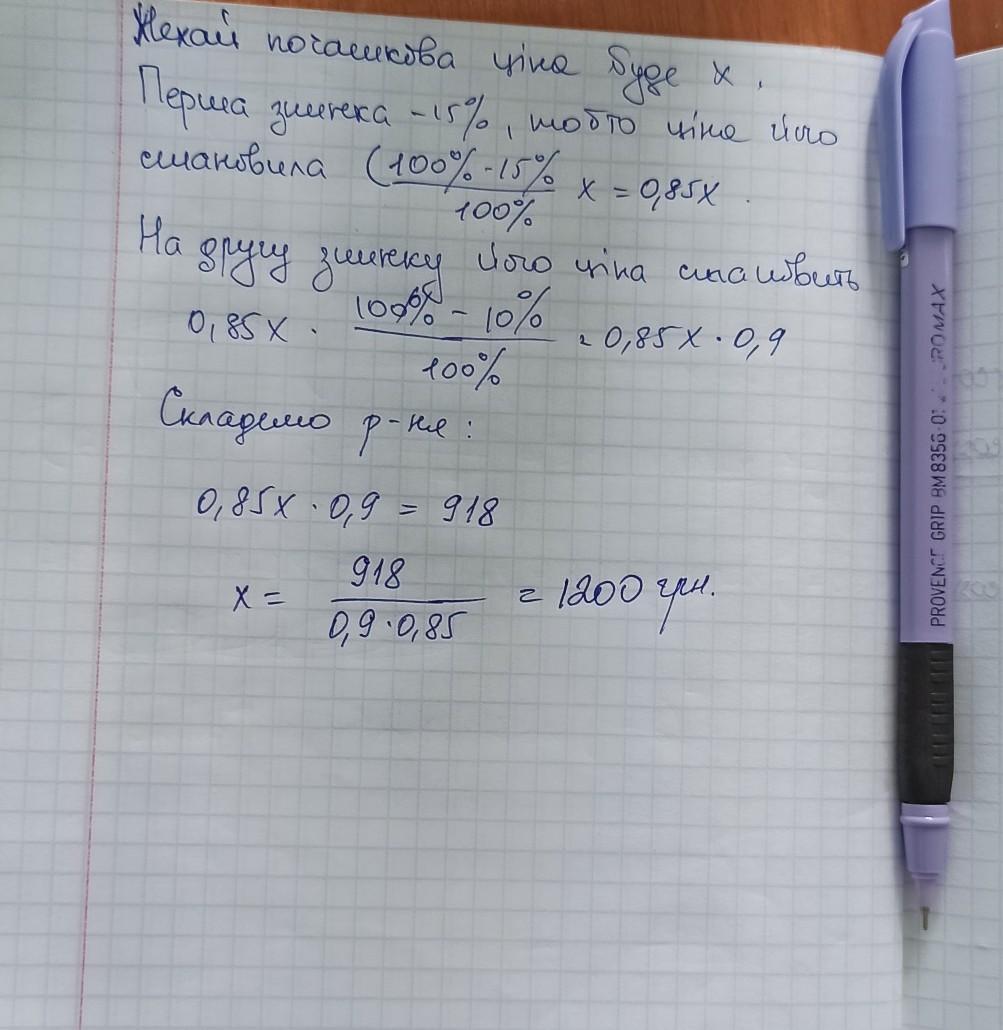 Нехай початкова ціна буде x.
Перша знижка -15%, тобто ціна його
становила (100%-15% / 100% x = 0,85x.
На другу знижку його ціна становить
0,85x · 100% - 10% / 100% = 0,85x · 0,9
Складемо р-ня:
0,85x · 0,9 = 918
x = 918 / 0,9·0,85 = 1200 грн.
PROVENCE GRIP BM8356-0
ROMAX